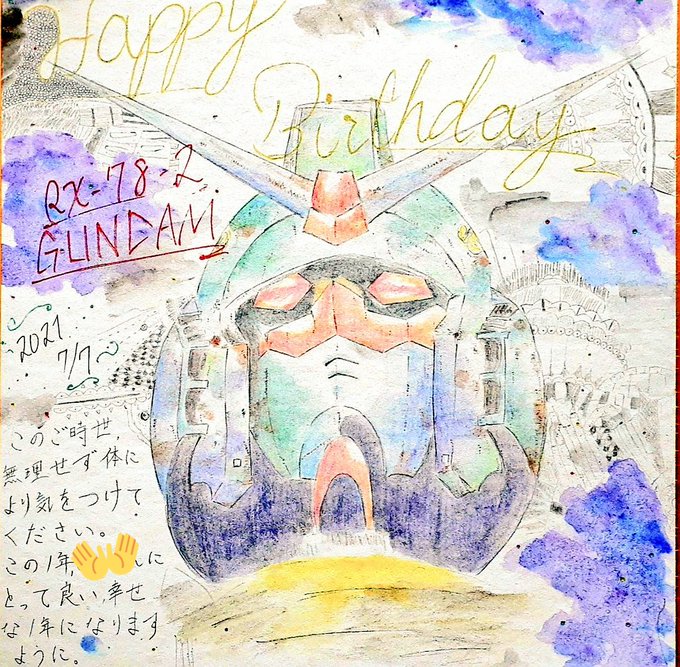 Happy
Birthday
RX-78-2
GUNDAM
2021
7/7
このご時世、
無理せず体に
より気をつけて
ください。
この1年、に
とって良い、幸せ
な1年になります
ように。